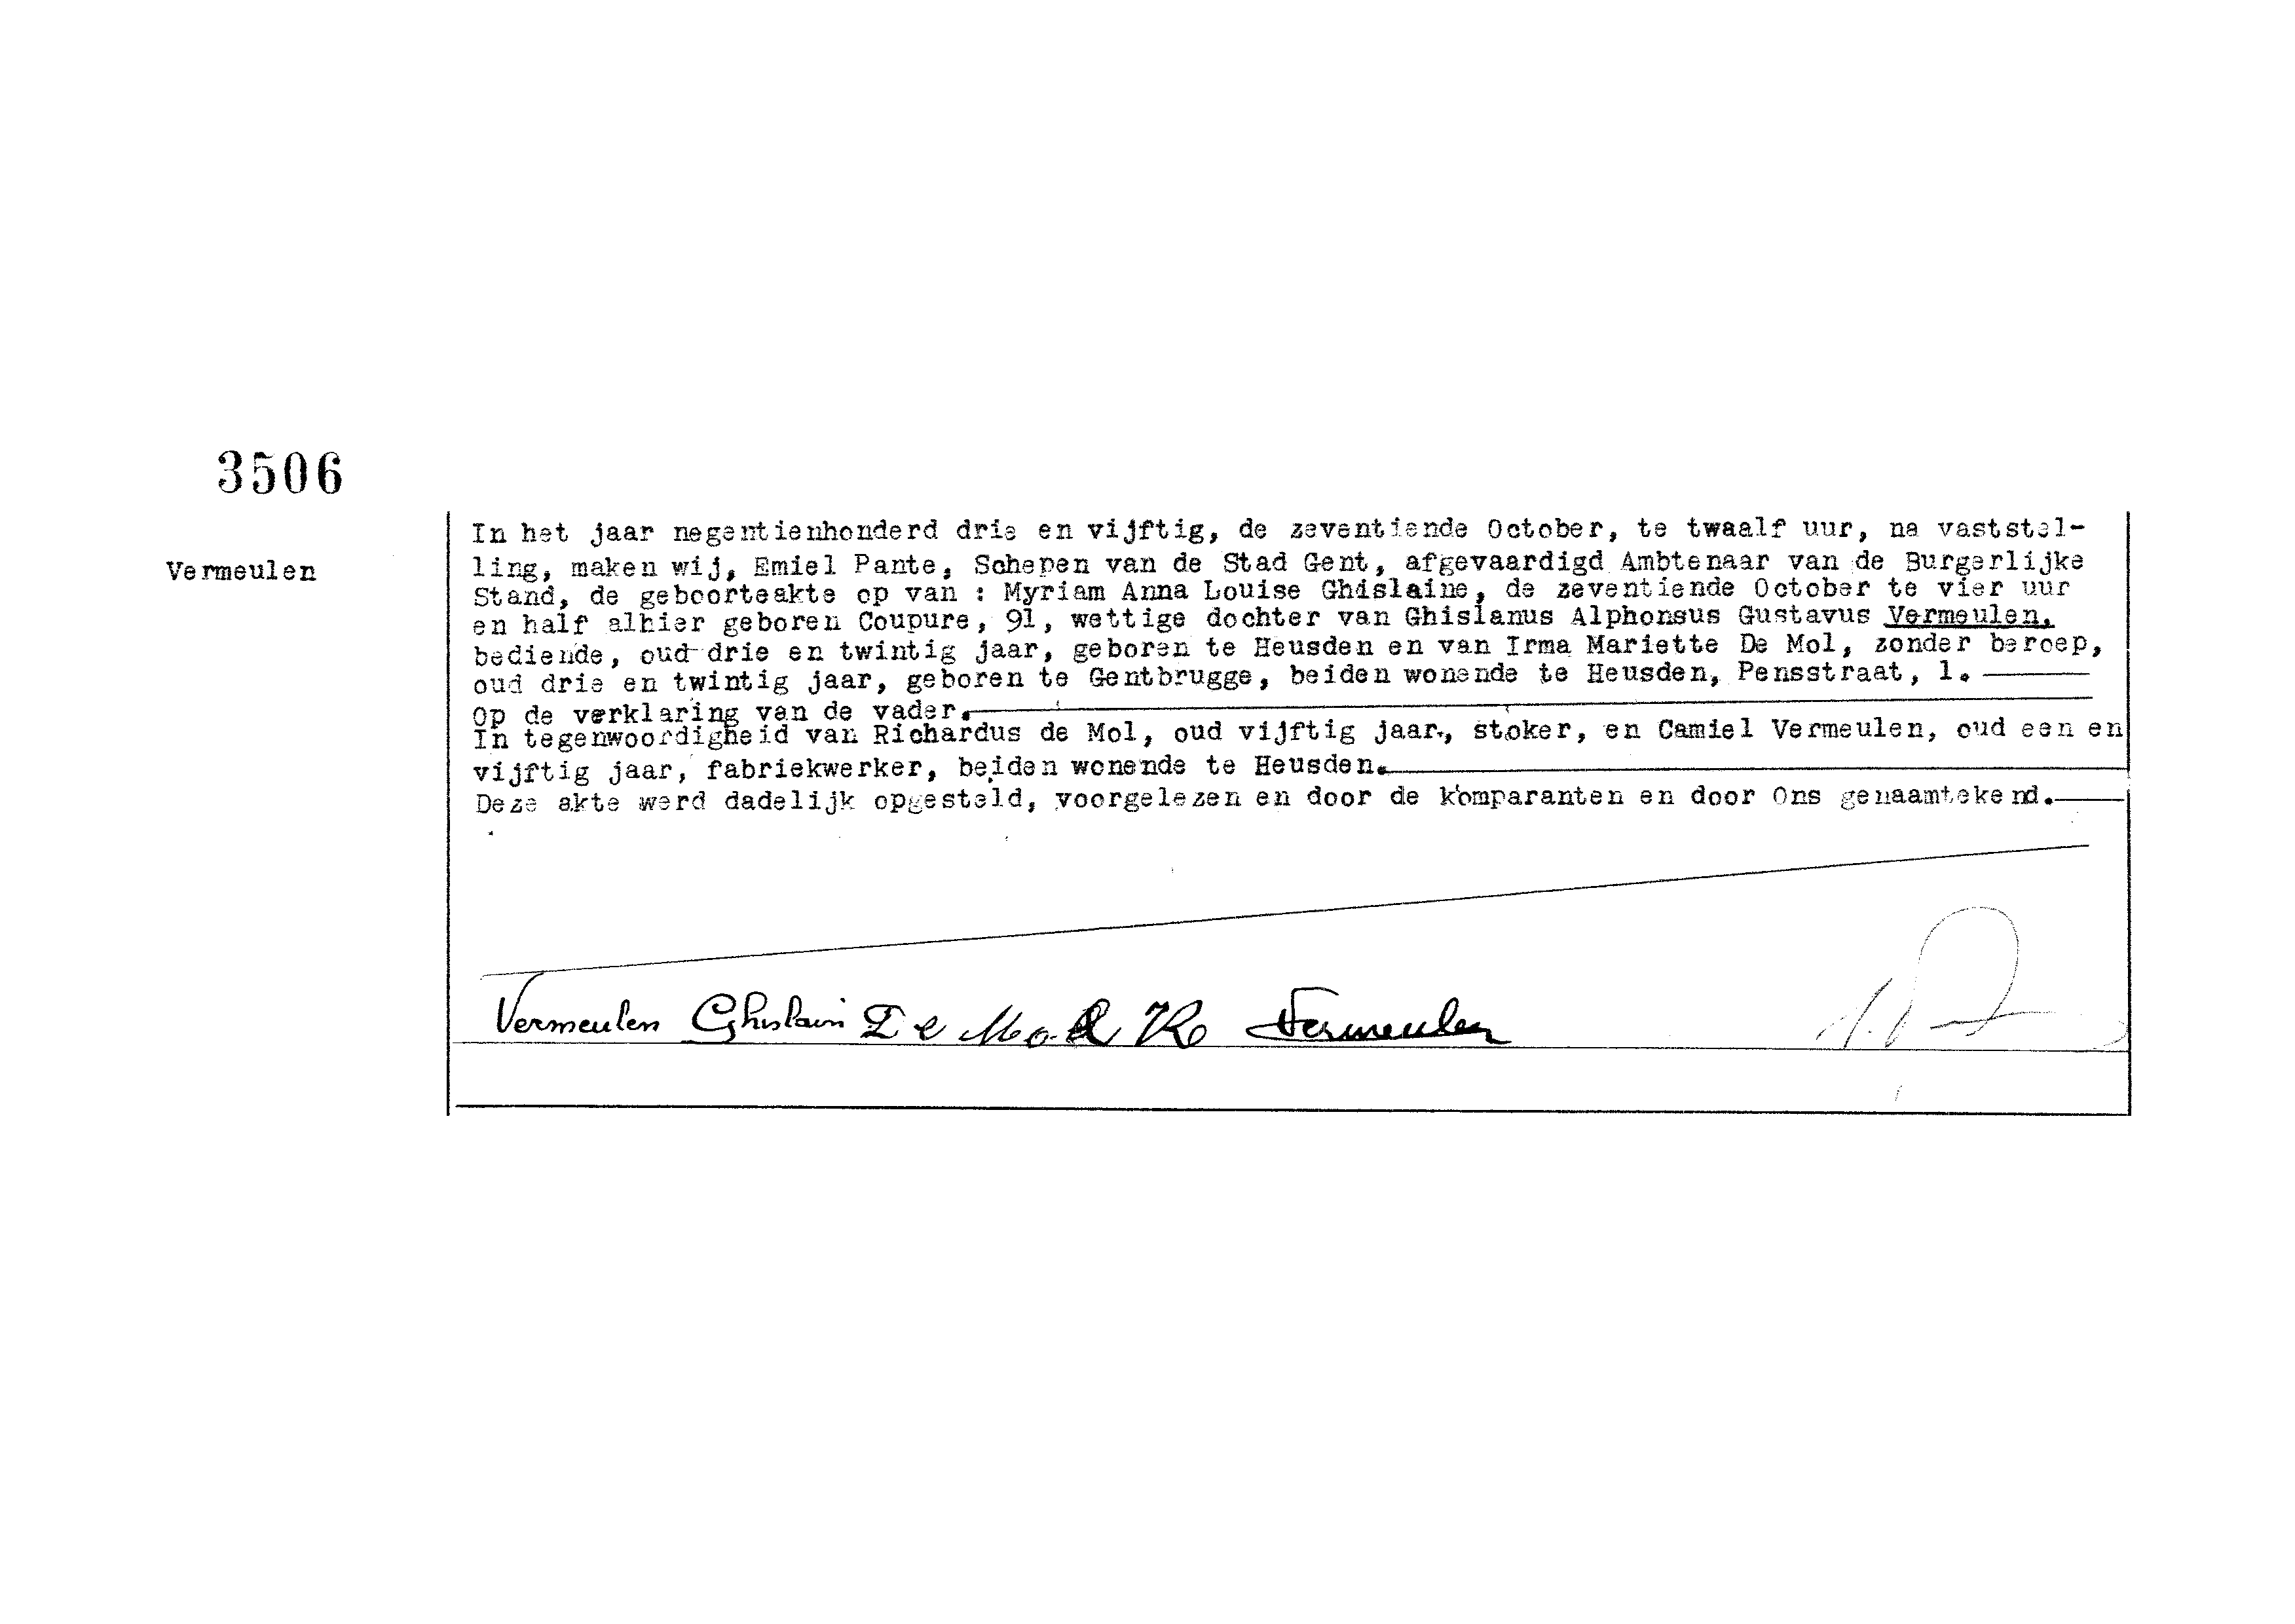 3506
Vermeulen
In het jaar negentienhonderd drie en vijftig, de zeventiende October, te twaalf uur, na vaststel-
ling, maken wij, Emiel Pante, Schepen van de Stad Gent, afgevaardigd Ambtenaar van de Burgerlijke
Stand, de geboorteakte op van : Myriam Anna Louise Ghislaine, de zeventiende October te vier uur
en half alhier geboren Coupure, 91, wettige dochter van Ghislanus Alphonsus Gustavus Vermeulen,
bediende, oud drie en twintig jaar, geboren te Heusden en van Irma Mariette De Mol, zonder beroep,
oud drie en twintig jaar, geboren te Gentbrugge, beiden wonende te Heusden, Pensstraat, 1.
Op de verklaring van de vader.
In tegenwoordigheid van Richardus de Mol, oud vijftig jaar, stoker, en Camiel Vermeulen, oud een en
vijftig jaar, fabriekwerker, beiden wonende te Heusden.
Deze akte werd dadelijk opgesteld, voorgelezen en door de komparanten en door Ons genaamtekend.
Vermeulen Ghislain De Mol R Vermeulen